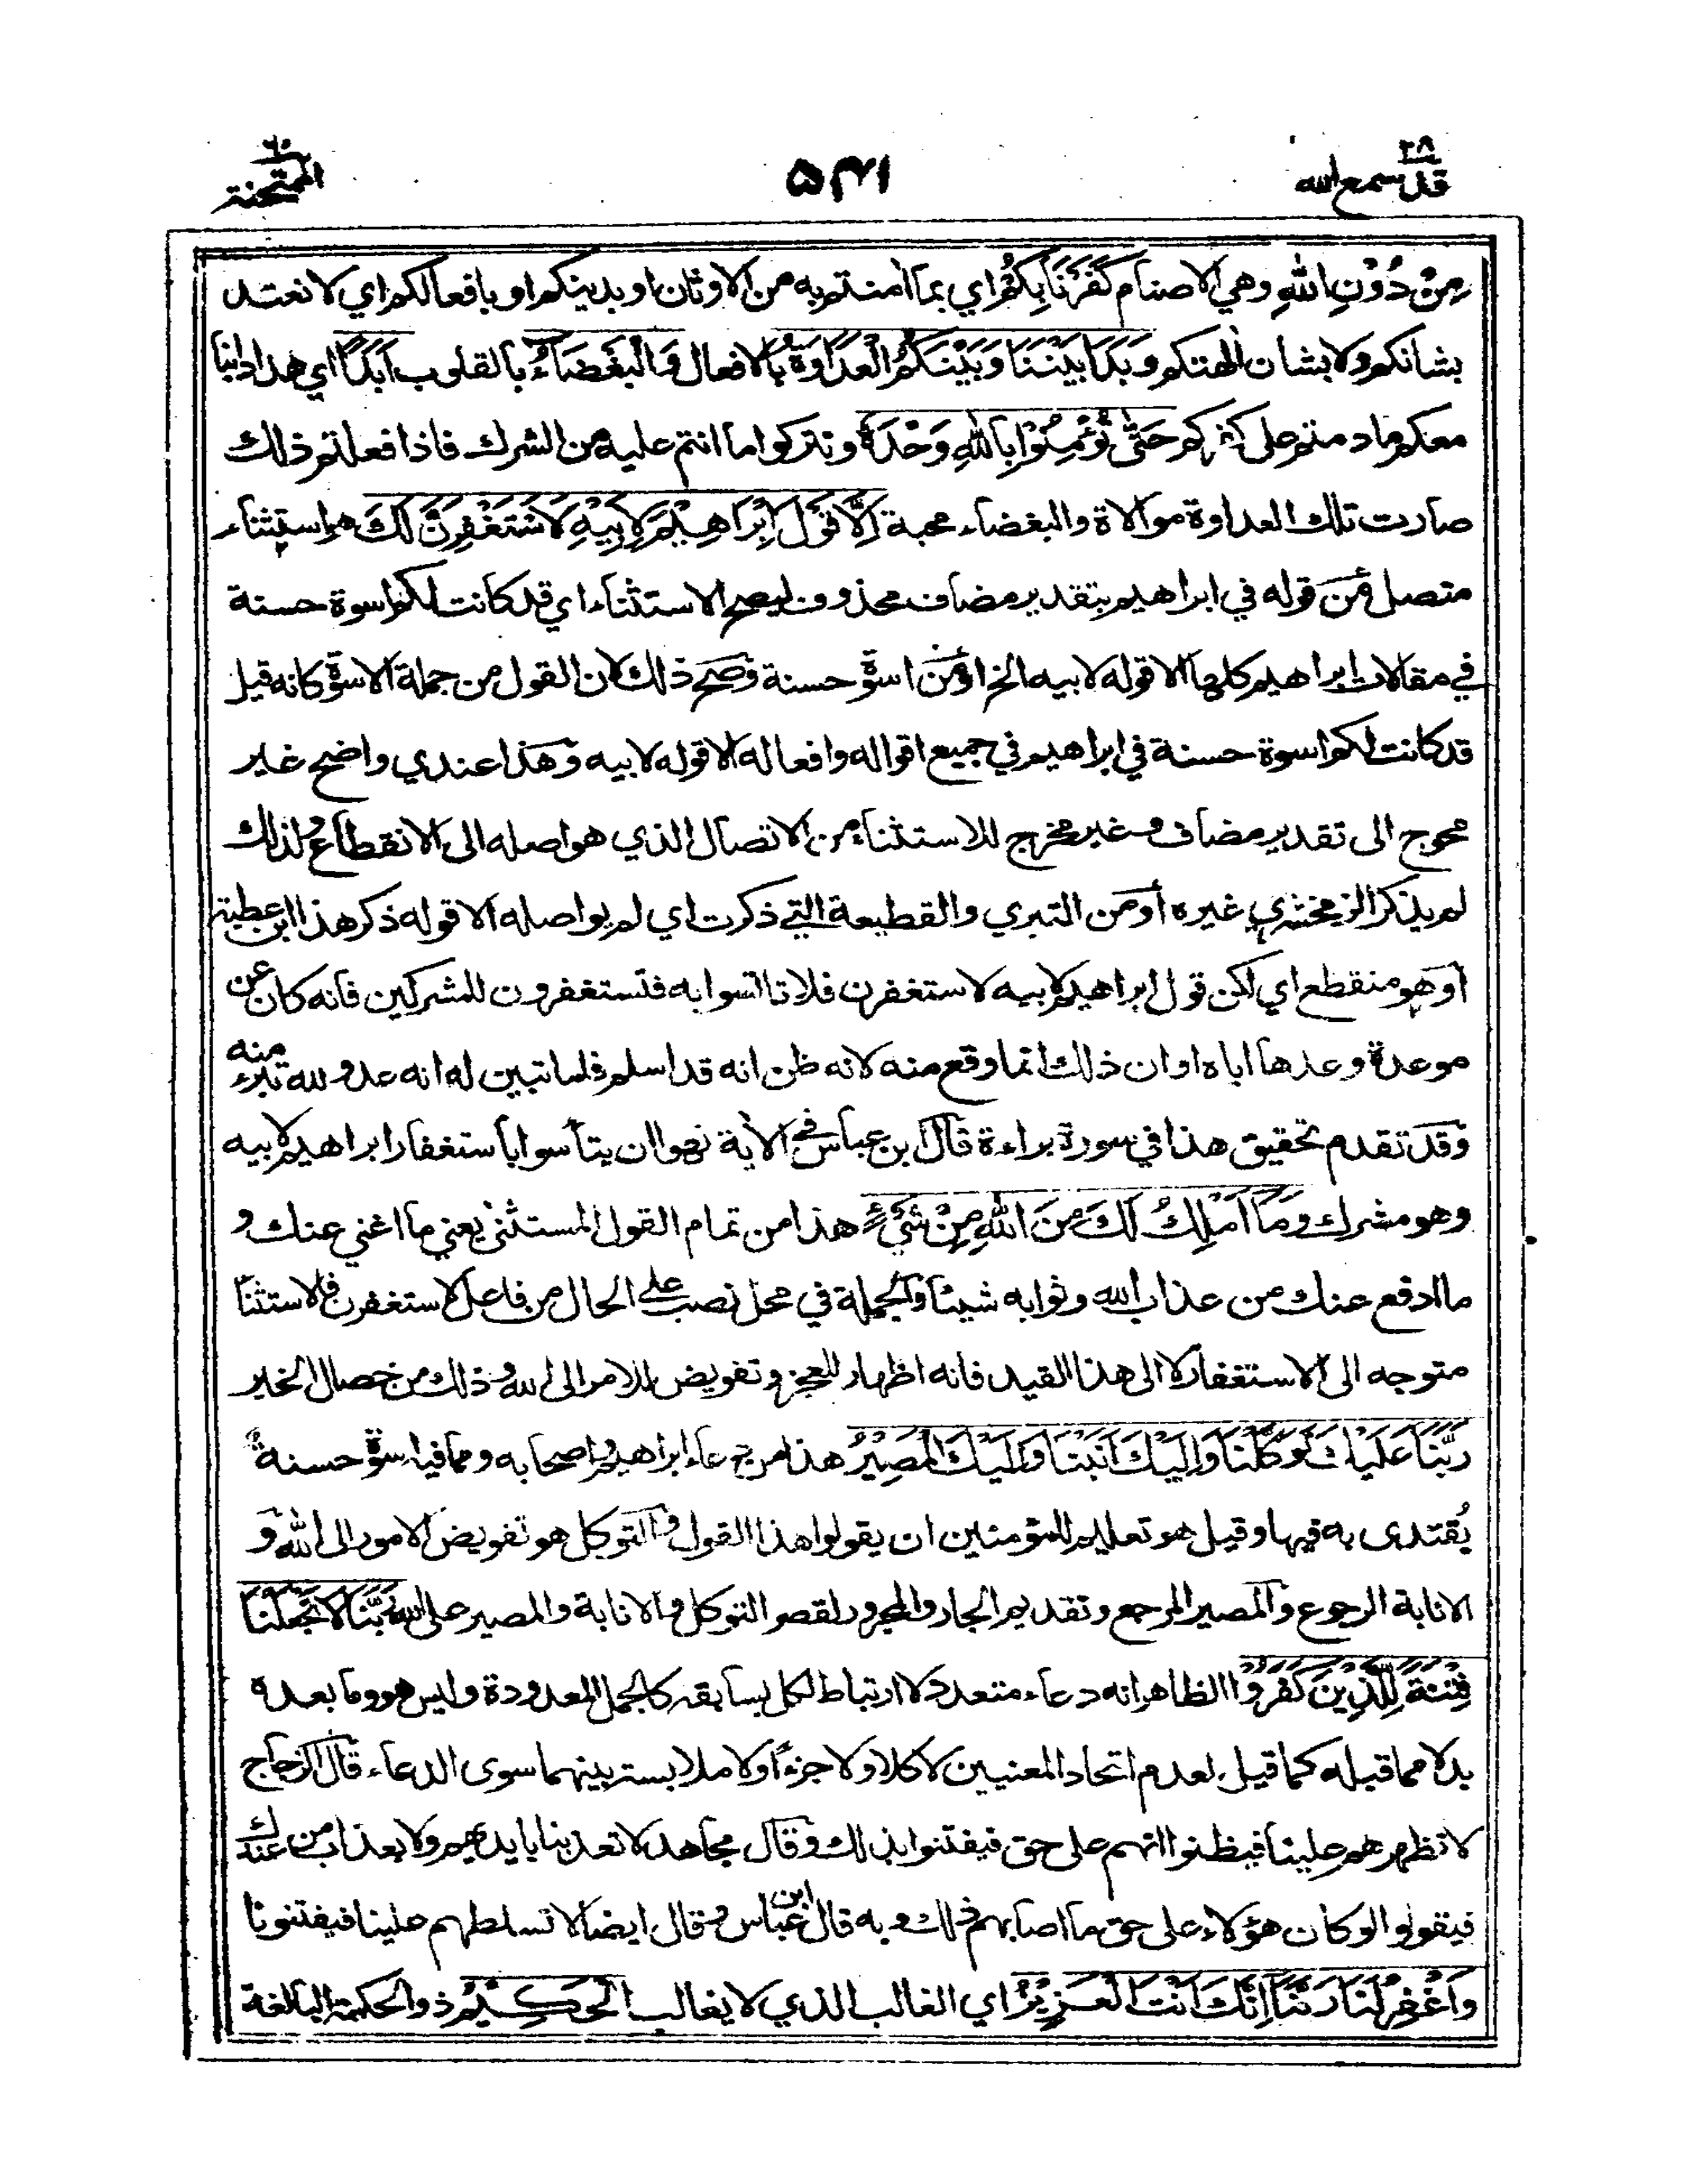 قد سمع الله ٢٨
٥٤١
الممتحنة ٦٠
مِنْ دُوْنِ اللّٰهِ وهي الاصنام كَفَرْنَا بِكُمْ اي بما اٰمنتم به من الاوثان او بدينكم او بافعالكم اي لا نعتد
بشانكم ولا بشان اٰلهتكم وَبَدَا بَيْنَنَا وَبَيْنَكُمُ الْعَدَاوَةُ بالافعال وَالْبَغْضَآءُ بالقلوب اَبَدًا اي هذا دابنا
معكم ما دمتم على كفركم حَتّٰى تُؤْمِنُوْا بِاللّٰهِ وَحْدَهٗ وتتركوا ما انتم عليه من الشرك فاذا فعلتم ذلك
صارت تلك العداوة موالاة والبغضاء محبة اِلَّا قَوْلَ اِبْرَاهِيْمَ لِاَبِيْهِ لَاَسْتَغْفِرَنَّ لَكَ هو استثناء
متصل من قوله في ابراهيم بتقدير مضاف محذوف ليصح الاستثناء اي قد كانت لكم اسوة حسنة
في مقالات ابراهيم كلها الا قوله لابيه الخ او من اسوة حسنة وصح ذلك لان القول من جملة الاسوة كانه قيل
قد كانت لكم اسوة حسنة في ابراهيم في جميع اقواله وافعاله الا قوله لابيه وهذا عندي واضح غير
محوج الى تقدير مضاف وغير مخرج للاستثناء من الاتصال الذي هو اصله الى الانقطاع ولذلك
لم يذكر الزمخشري غيره او من التبري والقطيعة التي ذكرت اي لم يواصله الا قوله ذكر هذا ابن عطية
او هو منقطع اي لكن قول ابراهيم لابيه لاستغفرن فلا تاتسوا به فتستغفرون للمشركين فانه كان عن
موعدة وعدها اياه او ان ذلك انما وقع منه لانه ظن انه قد اسلم فلما تبين له انه عدو لله تبرء منه
وقد تقدم تحقيق هذا في سورة براءة قال ابن عباس في الاٰية نهوا ان يتأسوا بأستغفار ابراهيم لابيه
وهو مشرك وَمَا اَمْلِكُ لَكَ مِنَ اللّٰهِ مِنْ شَيْءٍ هذا من تمام القول المستثنى يعني ما اغني عنك و
ما ادفع عنك من عذاب الله وثوابه شيئا والجملة في محل نصب على الحال من فاعل لاستغفرن فالاستثنا
متوجه الى الاستغفار لا الى هذا القيد فانه اظهار للعجز وتفويض للامر الى الله وذلك من خصال الخير
رَبَّنَا عَلَيْكَ تَوَكَّلْنَا وَاِلَيْكَ اَنَبْنَا وَاِلَيْكَ الْمَصِيْرُ هذا من دعاء ابراهيم واصحابه ومما فيه اسوة حسنة
يُقتدى به فيها وقيل هو تعليم للمؤمنين ان يقولوا هذا القول والتوكل هو تفويض الامور الى الله و
الانابة الرجوع والمصير المرجع وتقديم الجار والمجرور لقصر التوكل والانابة والمصير على الله رَبَّنَا لَا تَجْعَلْنَا
فِتْنَةً لِلَّذِيْنَ كَفَرُوْا الظاهر انه دعاء متعدد لا ارتباط لكل بسابقه كالجمل المعدودة وليس هو وما بعده
بدلا مما قبله كما قيل لعدم اتحاد المعنيين لا كلا ولا جزءا ولا ملابسة بينهما سوى الدعاء قال الزجاج
لا تظهرهم علينا فيظنوا انهم على حق فيفتنوا بذلك وقال مجاهد لا تعذبنا بايديهم ولا بعذاب من عندك
فيقولوا لو كان هؤلاء على حق ما اصابهم ذلك وبه قال ابن عباس وقال ايضا لا تسلطهم علينا فيفتنونا
وَاغْفِرْ لَنَا رَبَّنَا اِنَّكَ اَنْتَ الْعَزِيْزُ اي الغالب الذي لا يغالب الْحَكِيْمُ ذو الحكمة البالغة